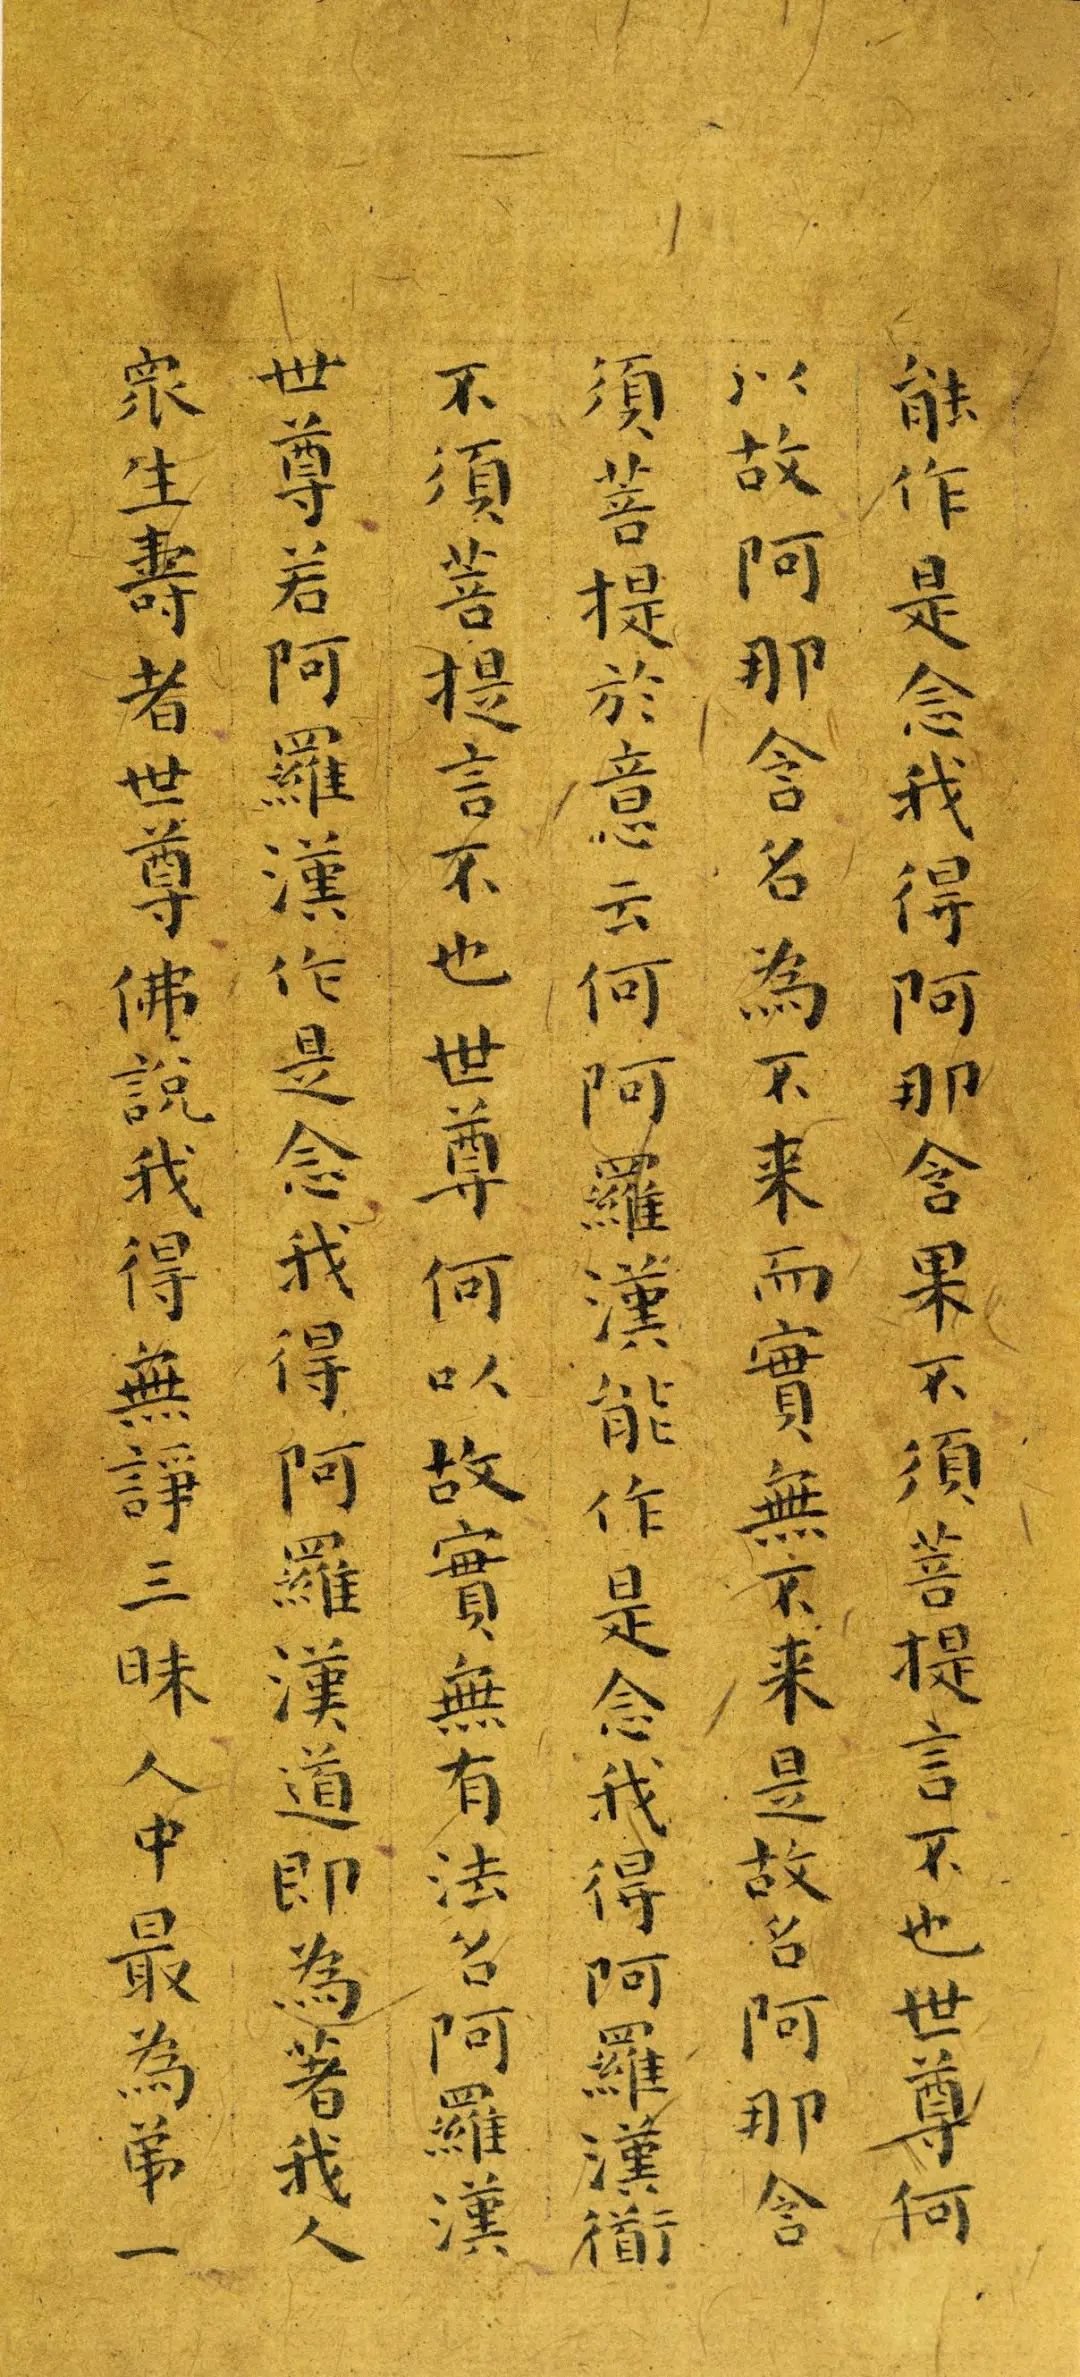 能作是念我得阿那含果不須菩提言不也世尊何
以故阿那含名為不来而實無不来是故名阿那含
須菩提於意云何阿羅漢能作是念我得阿羅漢衟
不須菩提言不也世尊何以故實無有法名阿羅漢
世尊若阿羅漢作是念我得阿羅漢道即為著我人
衆生壽者世尊佛說我得無諍三昧人中最為苐一